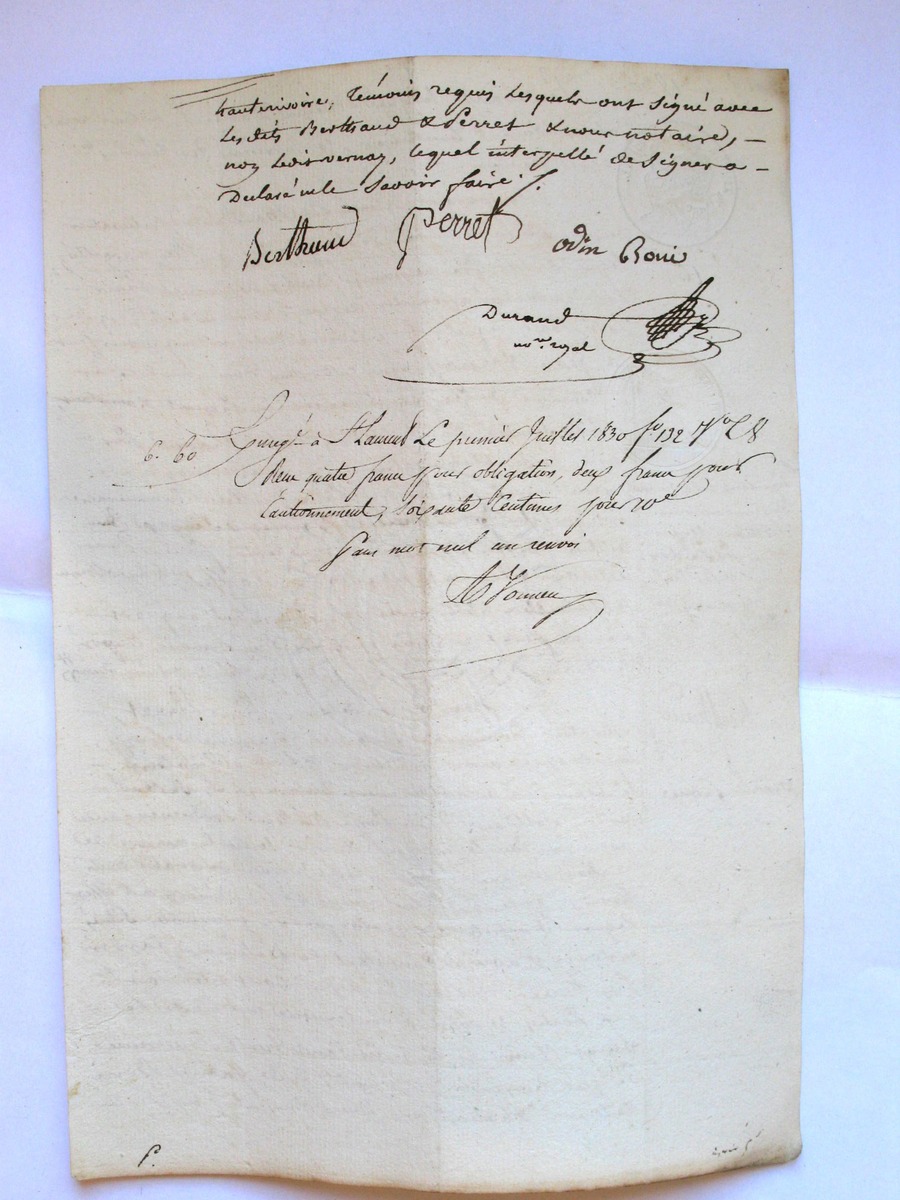 hauterivoire, témoins requis lesquels ont signé avec
les dits Berthaud & Perret & nous notaire, —
non ledit vernay, lequel interpellé de signer a —
Déclaré ne le savoir faire /.
Berthaud Perret odin Boni
Durand
no.re royal
6. 60 à St Laurent Le premier Juillet 1830 fo. 192 Vo C 8
Reçu quatre francs pour obligation, deux francs pour
Cautionnement, soixante Centimes pour 10e
Sans mot nul un renvoi